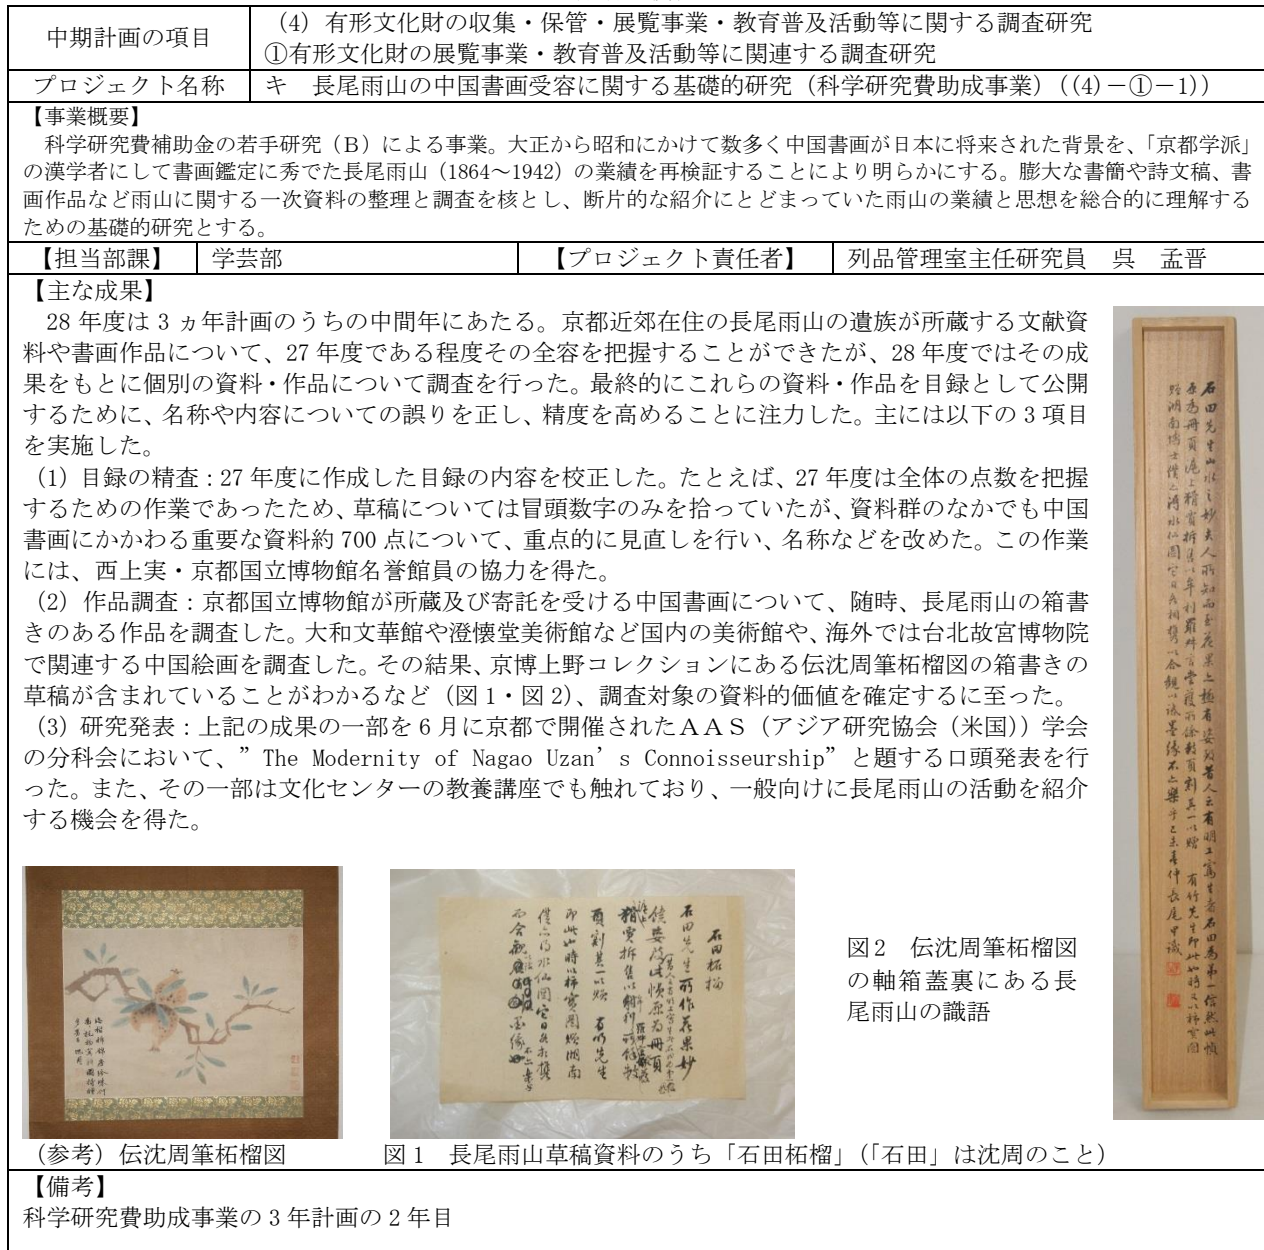 中期計画の項目
（4）有形文化財の収集・保管・展覧事業・教育普及活動等に関する調査研究
①有形文化財の展覧事業・教育普及活動等に関連する調査研究
プロジェクト名称
キ　長尾雨山の中国書画受容に関する基礎的研究（科学研究費助成事業）（(4)－①－1)）
【事業概要】
科学研究費補助金の若手研究（B）による事業。大正から昭和にかけて数多く中国書画が日本に将来された背景を、「京都学派」
の漢学者にして書画鑑定に秀でた長尾雨山（1864～1942）の業績を再検証することにより明らかにする。膨大な書簡や詩文稿、書
画作品など雨山に関する一次資料の整理と調査を核とし、断片的な紹介にとどまっていた雨山の業績と思想を総合的に理解する
ための基礎的研究とする。
【担当部課】
学芸部
【プロジェクト責任者】
列品管理室主任研究員　呉　孟晋
【主な成果】
28 年度は 3 ヵ年計画のうちの中間年にあたる。京都近郊在住の長尾雨山の遺族が所蔵する文献資
料や書画作品について、27 年度である程度その全容を把握することができたが、28 年度ではその成
果をもとに個別の資料・作品について調査を行った。最終的にこれらの資料・作品を目録として公開
するために、名称や内容についての誤りを正し、精度を高めることに注力した。主には以下の 3 項目
を実施した。
（1）目録の精査：27 年度に作成した目録の内容を校正した。たとえば、27 年度は全体の点数を把握
するための作業であったため、草稿については冒頭数字のみを拾っていたが、資料群のなかでも中国
書画にかかわる重要な資料約 700 点について、重点的に見直しを行い、名称などを改めた。この作業
には、西上実・京都国立博物館名誉館員の協力を得た。
（2）作品調査：京都国立博物館が所蔵及び寄託を受ける中国書画について、随時、長尾雨山の箱書
きのある作品を調査した。大和文華館や澄懐堂美術館など国内の美術館や、海外では台北故宮博物院
で関連する中国絵画を調査した。その結果、京博上野コレクションにある伝沈周筆柘榴図の箱書きの
草稿が含まれていることがわかるなど（図 1・図 2）、調査対象の資料的価値を確定するに至った。
（3）研究発表：上記の成果の一部を 6 月に京都で開催されたＡＡＳ（アジア研究協会（米国））学会
の分科会において、”The Modernity of Nagao Uzan’s Connoisseurship”と題する口頭発表を行
った。また、その一部は文化センターの教養講座でも触れており、一般向けに長尾雨山の活動を紹介
する機会を得た。
石田柘榴
図2　伝沈周筆柘榴図
の軸箱蓋裏にある長
尾雨山の識語
（参考）伝沈周筆柘榴図
図 1　長尾雨山草稿資料のうち「石田柘榴」（「石田」は沈周のこと）
【備考】
科学研究費助成事業の 3 年計画の 2 年目